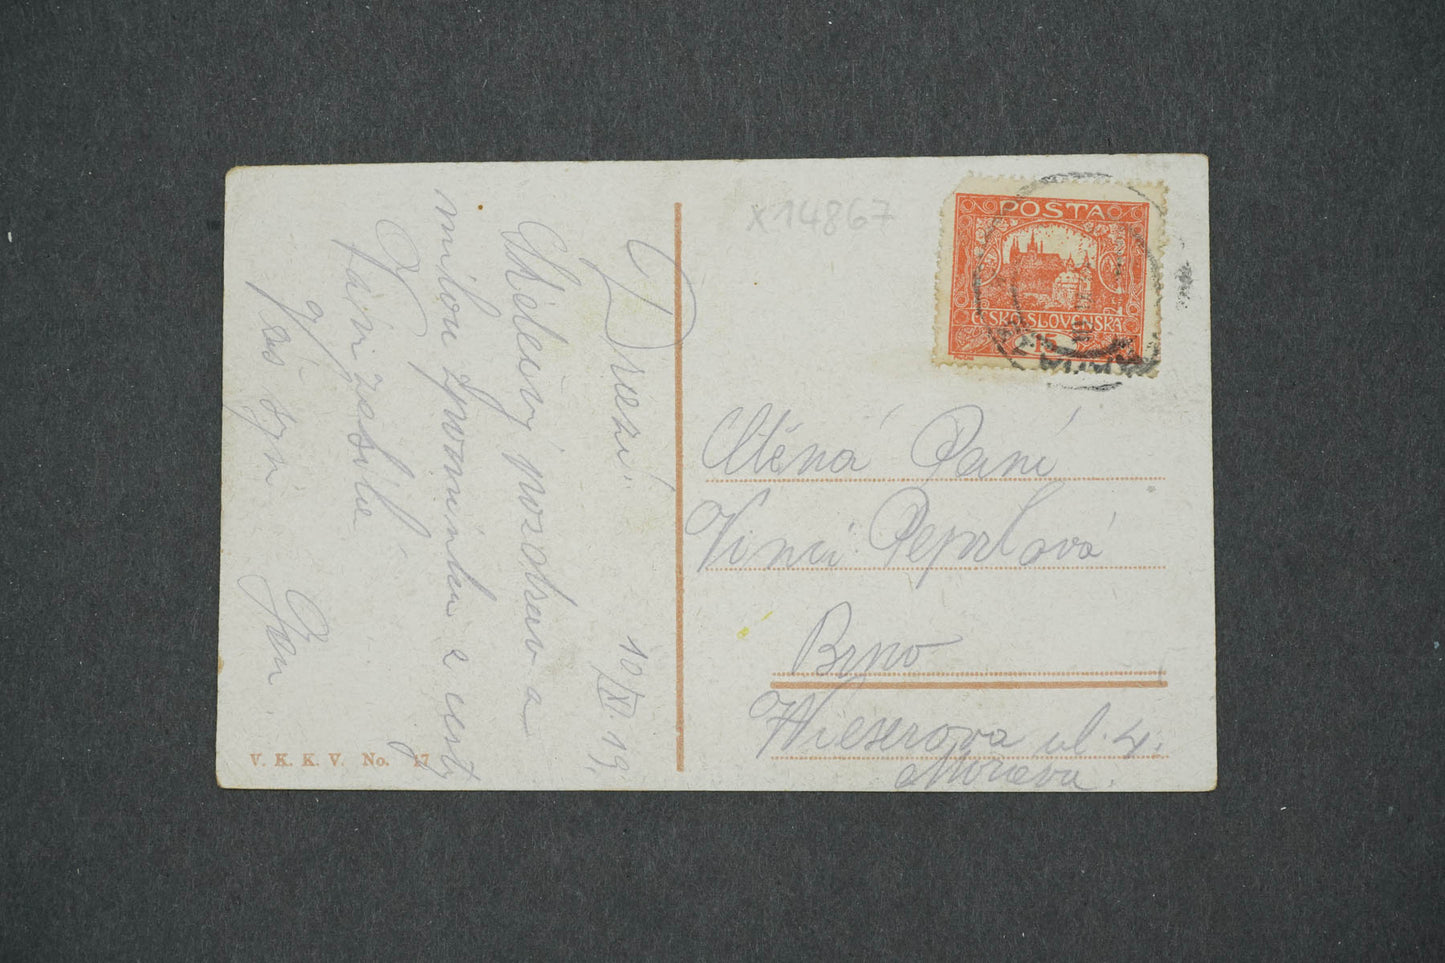 Drazí.
10/XI. 19.
Srdečný pozdrav a
milou vzpomínku z cesty
Vám zasílá
Váš syn
Jan.
V. K. K. V. No. 17
x14867
POSTA
ČESKOSLOVENSKÁ
15
Ctěná Paní
Vinci Peprlová
Brno
Wieserova ul. 4.
Morava.